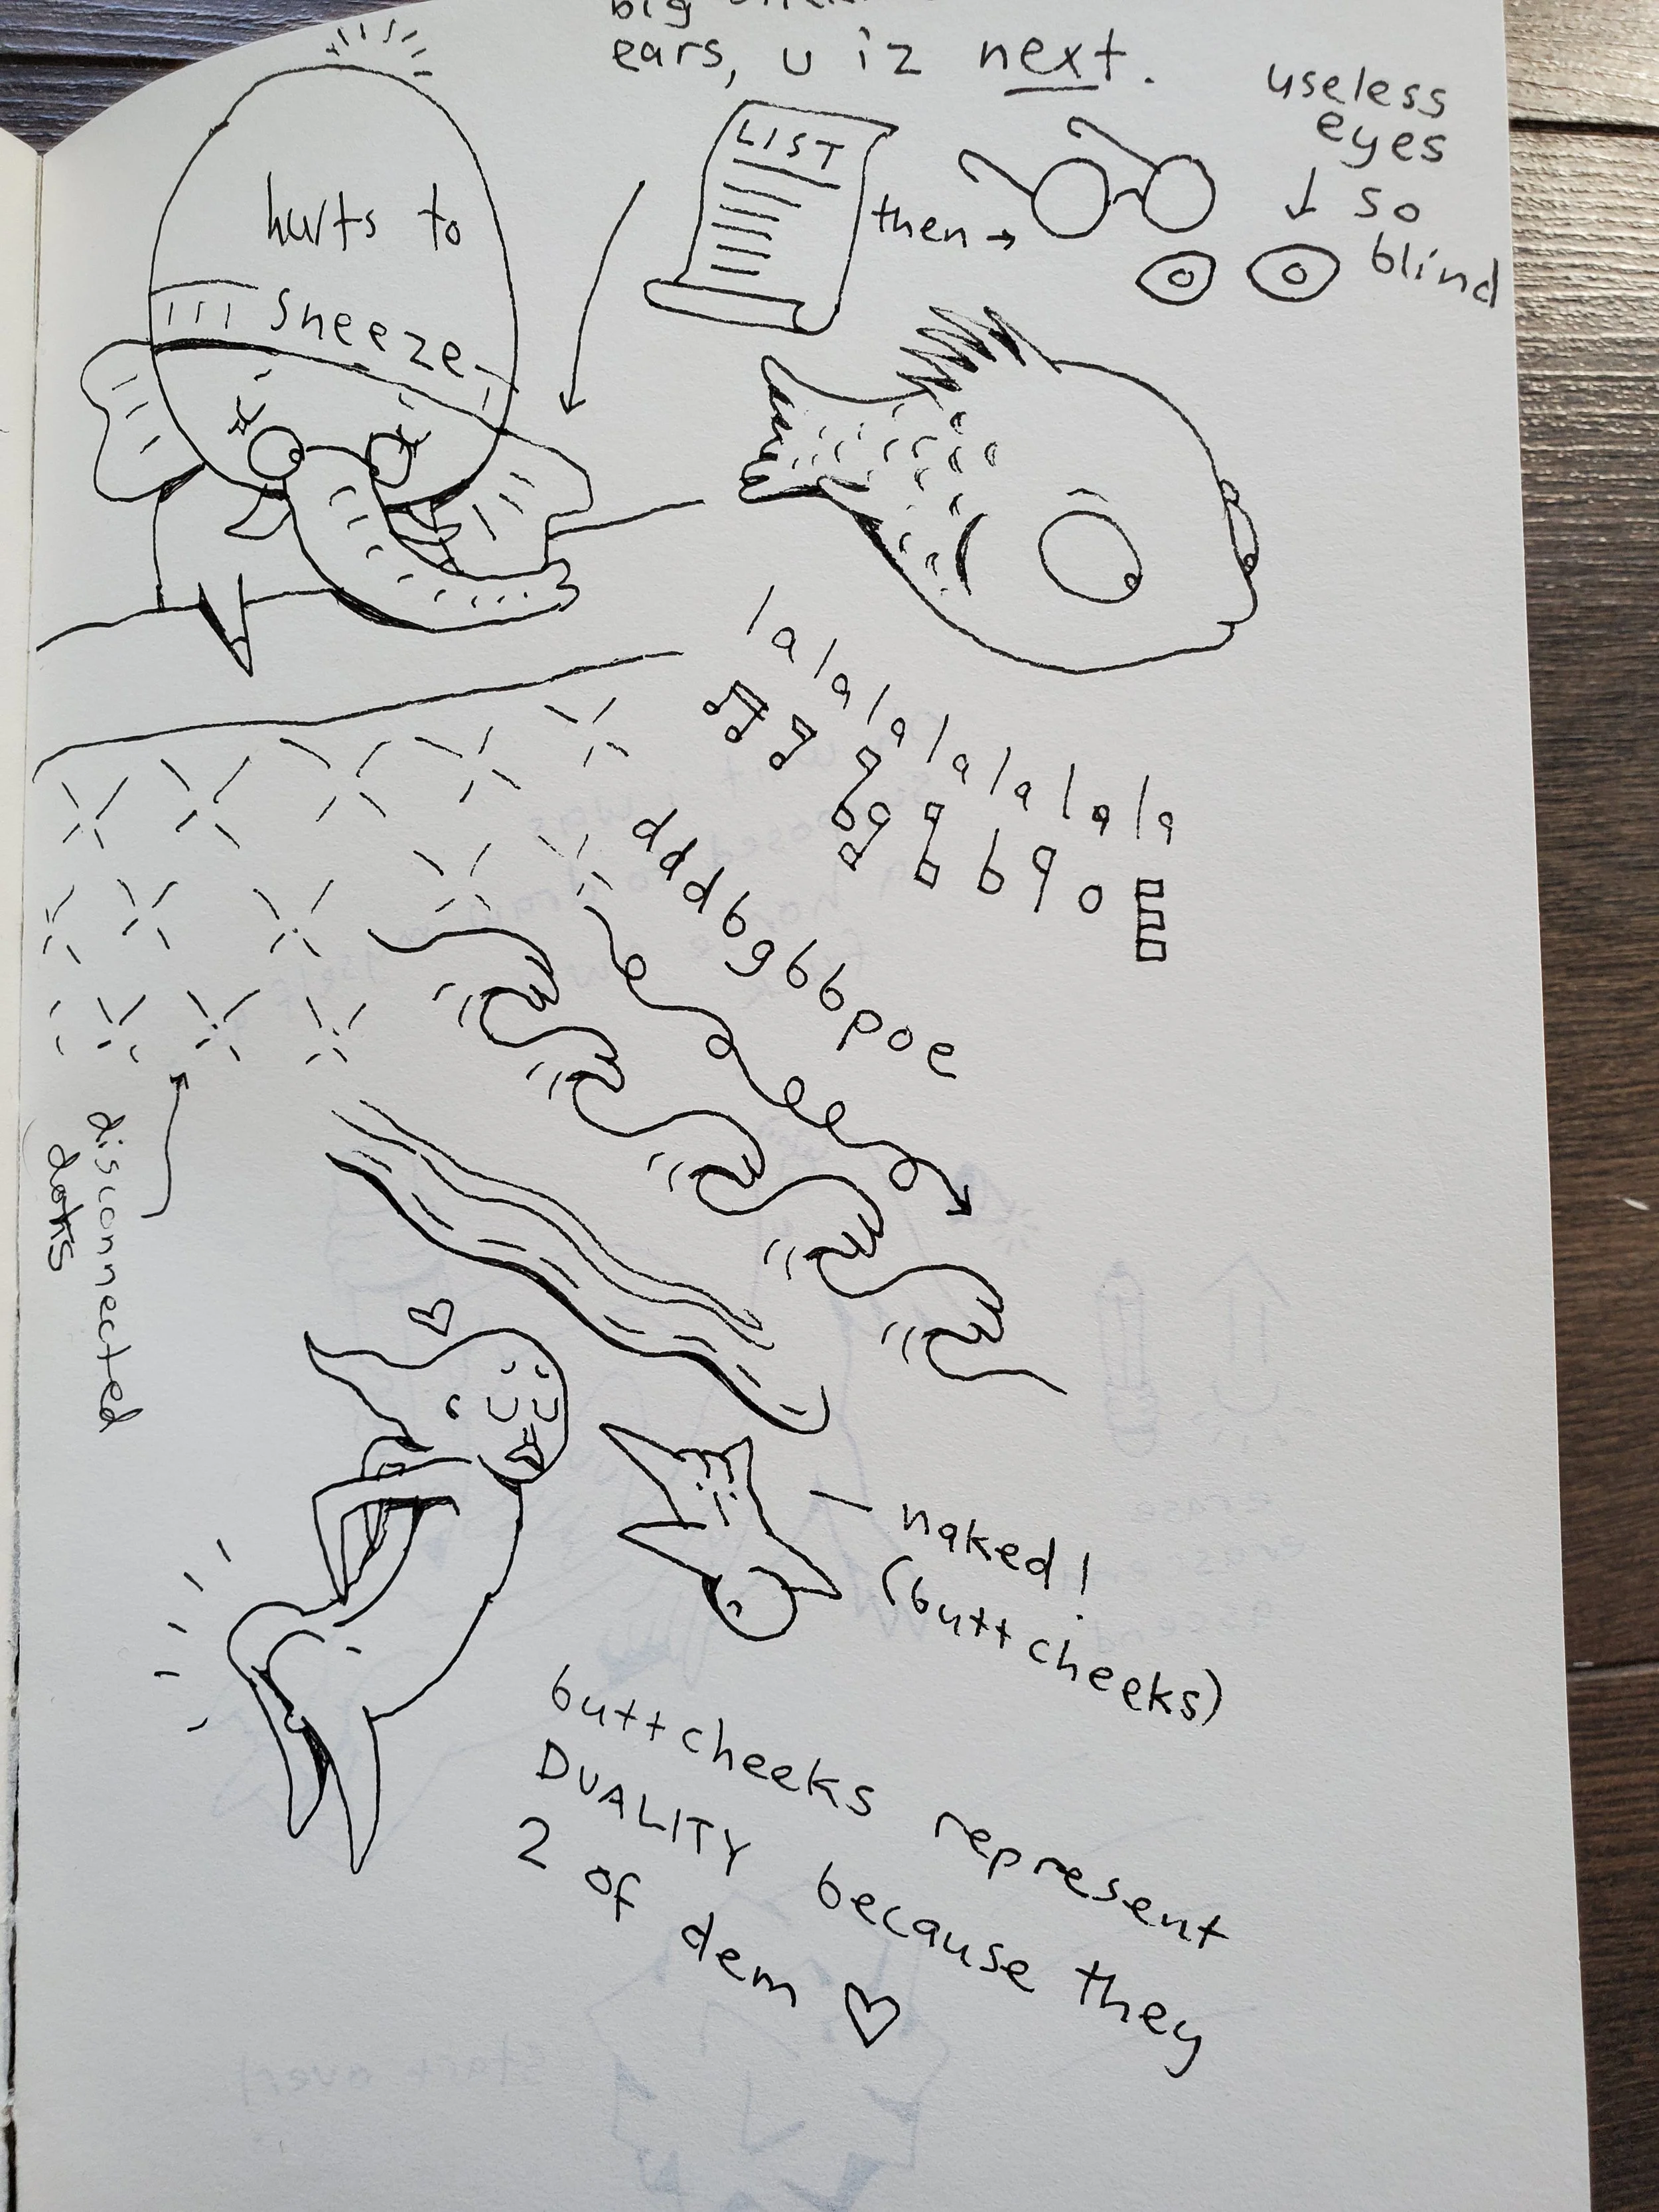 big
ears, u iz next.
useless
eyes
so
blind
LIST
then →
hurts to
sneeze
lalalalalalala
dddbgbbpoe
disconnected
dots
naked!
(buttcheeks)
buttcheeks represent
DUALITY because they
2 of dem ♡